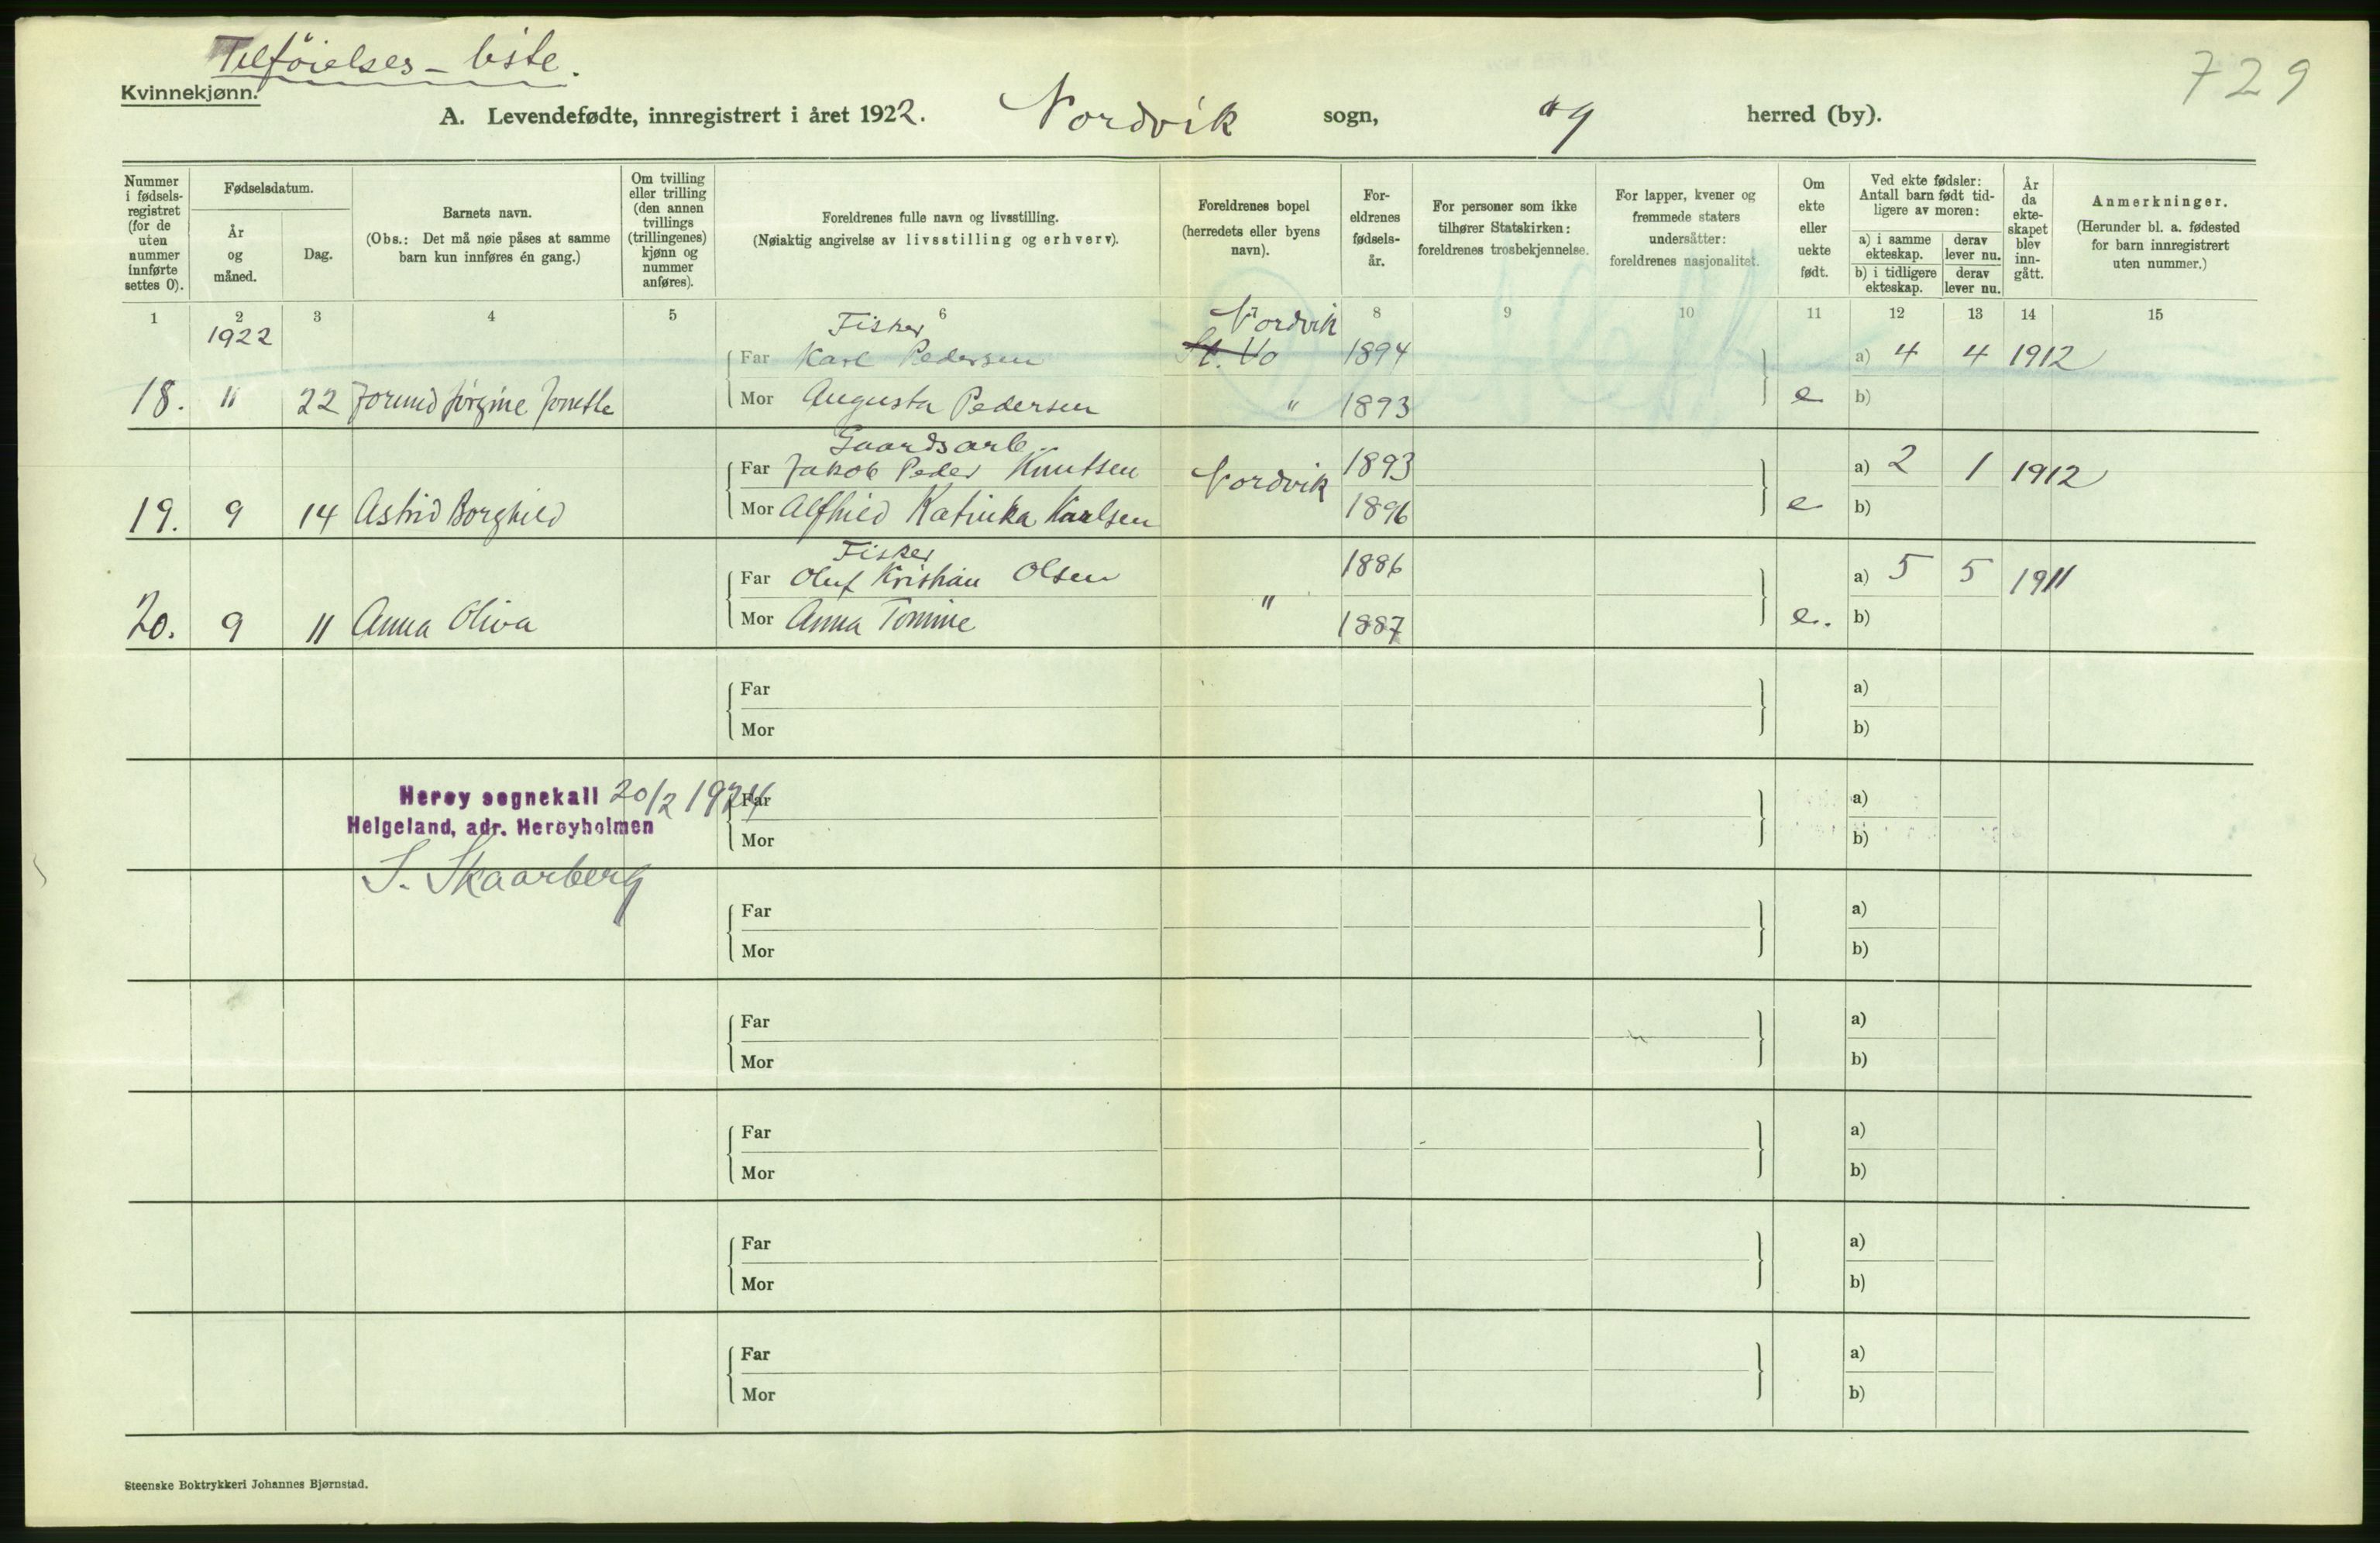 Tilføielses-liste.
729
Kvinnekjønn.
A. Levendefødte, innregistrert i året 1922. Nordvik sogn, og herred (by).
Nummer i fødsels-registret (for de uten nummer innførte settes 0).
Fødselsdatum.
År og måned.
Dag.
Barnets navn.
(Obs.: Det må nøie påses at samme barn kun innføres én gang.)
Om tvilling eller trilling (den annen tvillings (trillingenes) kjønn og nummer anføres).
Foreldrenes fulle navn og livsstilling.
(Nøiaktig angivelse av livsstilling og erhverv).
Foreldrenes bopel (herredets eller byens navn).
For-eldrenes fødsels-år.
For personer som ikke tilhører Statskirken: foreldrenes trosbekjennelse.
For lapper, kvener og fremmede staters undersåtter: foreldrenes nasjonalitet.
Om ekte eller uekte født.
Ved ekte fødsler: Antall barn født tid-ligere av moren:
a) i samme ekteskap.
derav lever nu.
b) i tidligere ekteskap.
derav lever nu.
År da ekte-skapet blev inn-gått.
Anmerkninger.
(Herunder bl. a. fødested for barn innregistrert uten nummer.)
1 2 3 4 5 6 8 9 10 11 12 13 14 15
1922 Fisker Nordvik
Far Karl Pedersen 1894 a) 4 4 1912
18. 11 22 Jorund Jørgine Jonette Mor Augusta Pedersen " 1893 e b)
Gaardsarb.
Far Jakob Peder Knutsen Nordvik 1893 a) 2 1 1912
19. 9 14 Astrid Borghild Mor Alfhild Katinka Karlsen 1896 e b)
Fisker
Far Oluf Kristian Olsen 1886 a) 5 5 1911
20. 9 11 Anna Oliva Mor Anna Tomine " 1887 e. b)
Far a)
Mor b)
Herøy sognekall 20/2 1924 Far a)
Helgeland, adr. Herøyholmen Mor b)
S. Skaarberg
Far a)
Mor b)
Far a)
Mor b)
Far a)
Mor b)
Far a)
Mor b)
Far a)
Mor b)
Steenske Boktrykkeri Johannes Bjørnstad.